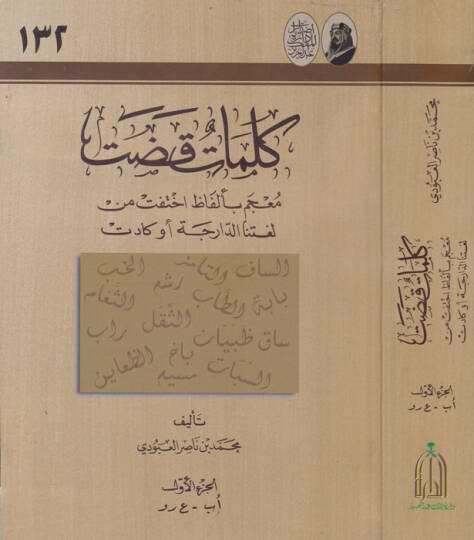 ١٣٢
كلمات قضت
معجم بألفاظ اختفت من
لغتنا الدارجة أو كادت
الساف الخب
بابة الطاب رشه الثغام
ساق ظبيات الثقل راب
السبات باخ الظعاين
مسيد
تَأليف
محمد بن ناصر العبودي
الجزء الأول
أ ب - ع ر و
محمد بن ناصر العبودي
كلمات قضت
معجم بألفاظ اختفت من
لغتنا الدارجة أو كادت
الجزء الأول
أ ب - ع ر و